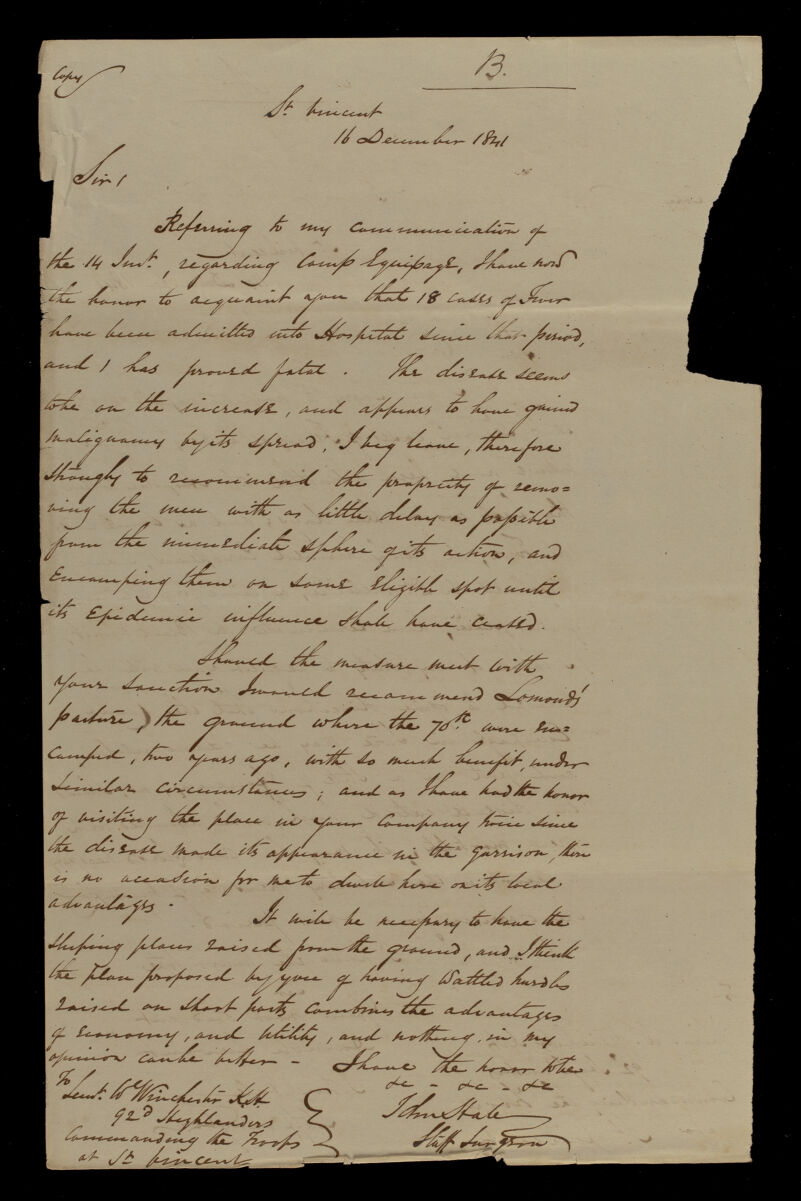 Copy
B.
St. Vincent
16 December 1841
Sir /
Referring to my communication of
the 14 Inst., regarding Camp Equipage, I have now
the honor to acquaint you that 18 cases of Fever
have been admitted into Hospital since that period,
and 1 has proved fatal. The disease seems
to be on the increase, and appears to have gained
malignancy by its spread. I beg leave, therefore
strongly to recommend the propriety of remo=
ving the men with as little delay as possible
from the immediate sphere of its action, and
encamping them on some eligible spot until
its Epidemic influence shall have ceased.
Should the measure meet with
your sanction I would recommend Lomond's
pasture, the ground where the 70th. were en=
camped, two years ago, with so much benefit, under
similar circumstances; and as I have had the honor
of visiting the place in your company twice since
the disease made its appearance in the garrison, there
is no occasion for me to dwell here on its local
advantages.
It will be necessary to have the
sleeping places raised from the ground, and I think
the plan proposed by you of having wattled hurdles
raised on short posts combines the advantages
of economy, and utility, and nothing in my
opinion can be better - I have the honor to be
&c - &c - &c
To
Lieut. Winchester K.H.
92d Highlanders
Commanding the Troops
at St. Vincent
John Hall
Staff Surgeon